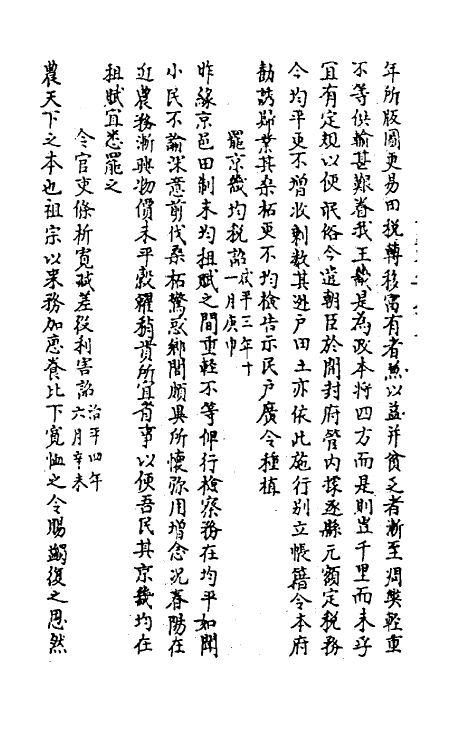 年所版圖更易田税轉移富有者無以益并貧乏者漸至凋獘輕重
不等供輸甚艱眷我王畿是為政本將四方而是則豈千里而未孚
宜有定規以便氓俗今遣朝臣於開封府管内採逐縣元額定税務
令均平更不增收剩數其逃户田土亦依此施行别立帳籍令本府
勸誘歸業其桑柘更不均檢告示民户廣令種植
罷京畿均税詔咸平三年十一月庚申
昨緣京邑田制未均祖賦之間重輕不等俾行檢察務在均平如聞
小民不諭深意前伐桑柘驚惑鄉閭頗異所懷弥用增念况春陽在
近農務漸興物價未平穀糴稍貴所宜省事以便吾民其京畿均在
祖賦宜悉罷之
令官吏條析寛賦差役利害詔治平四年六月辛未
農天下之本也祖宗以来務加惠養比下寛恤之令賜蠲復之恩然